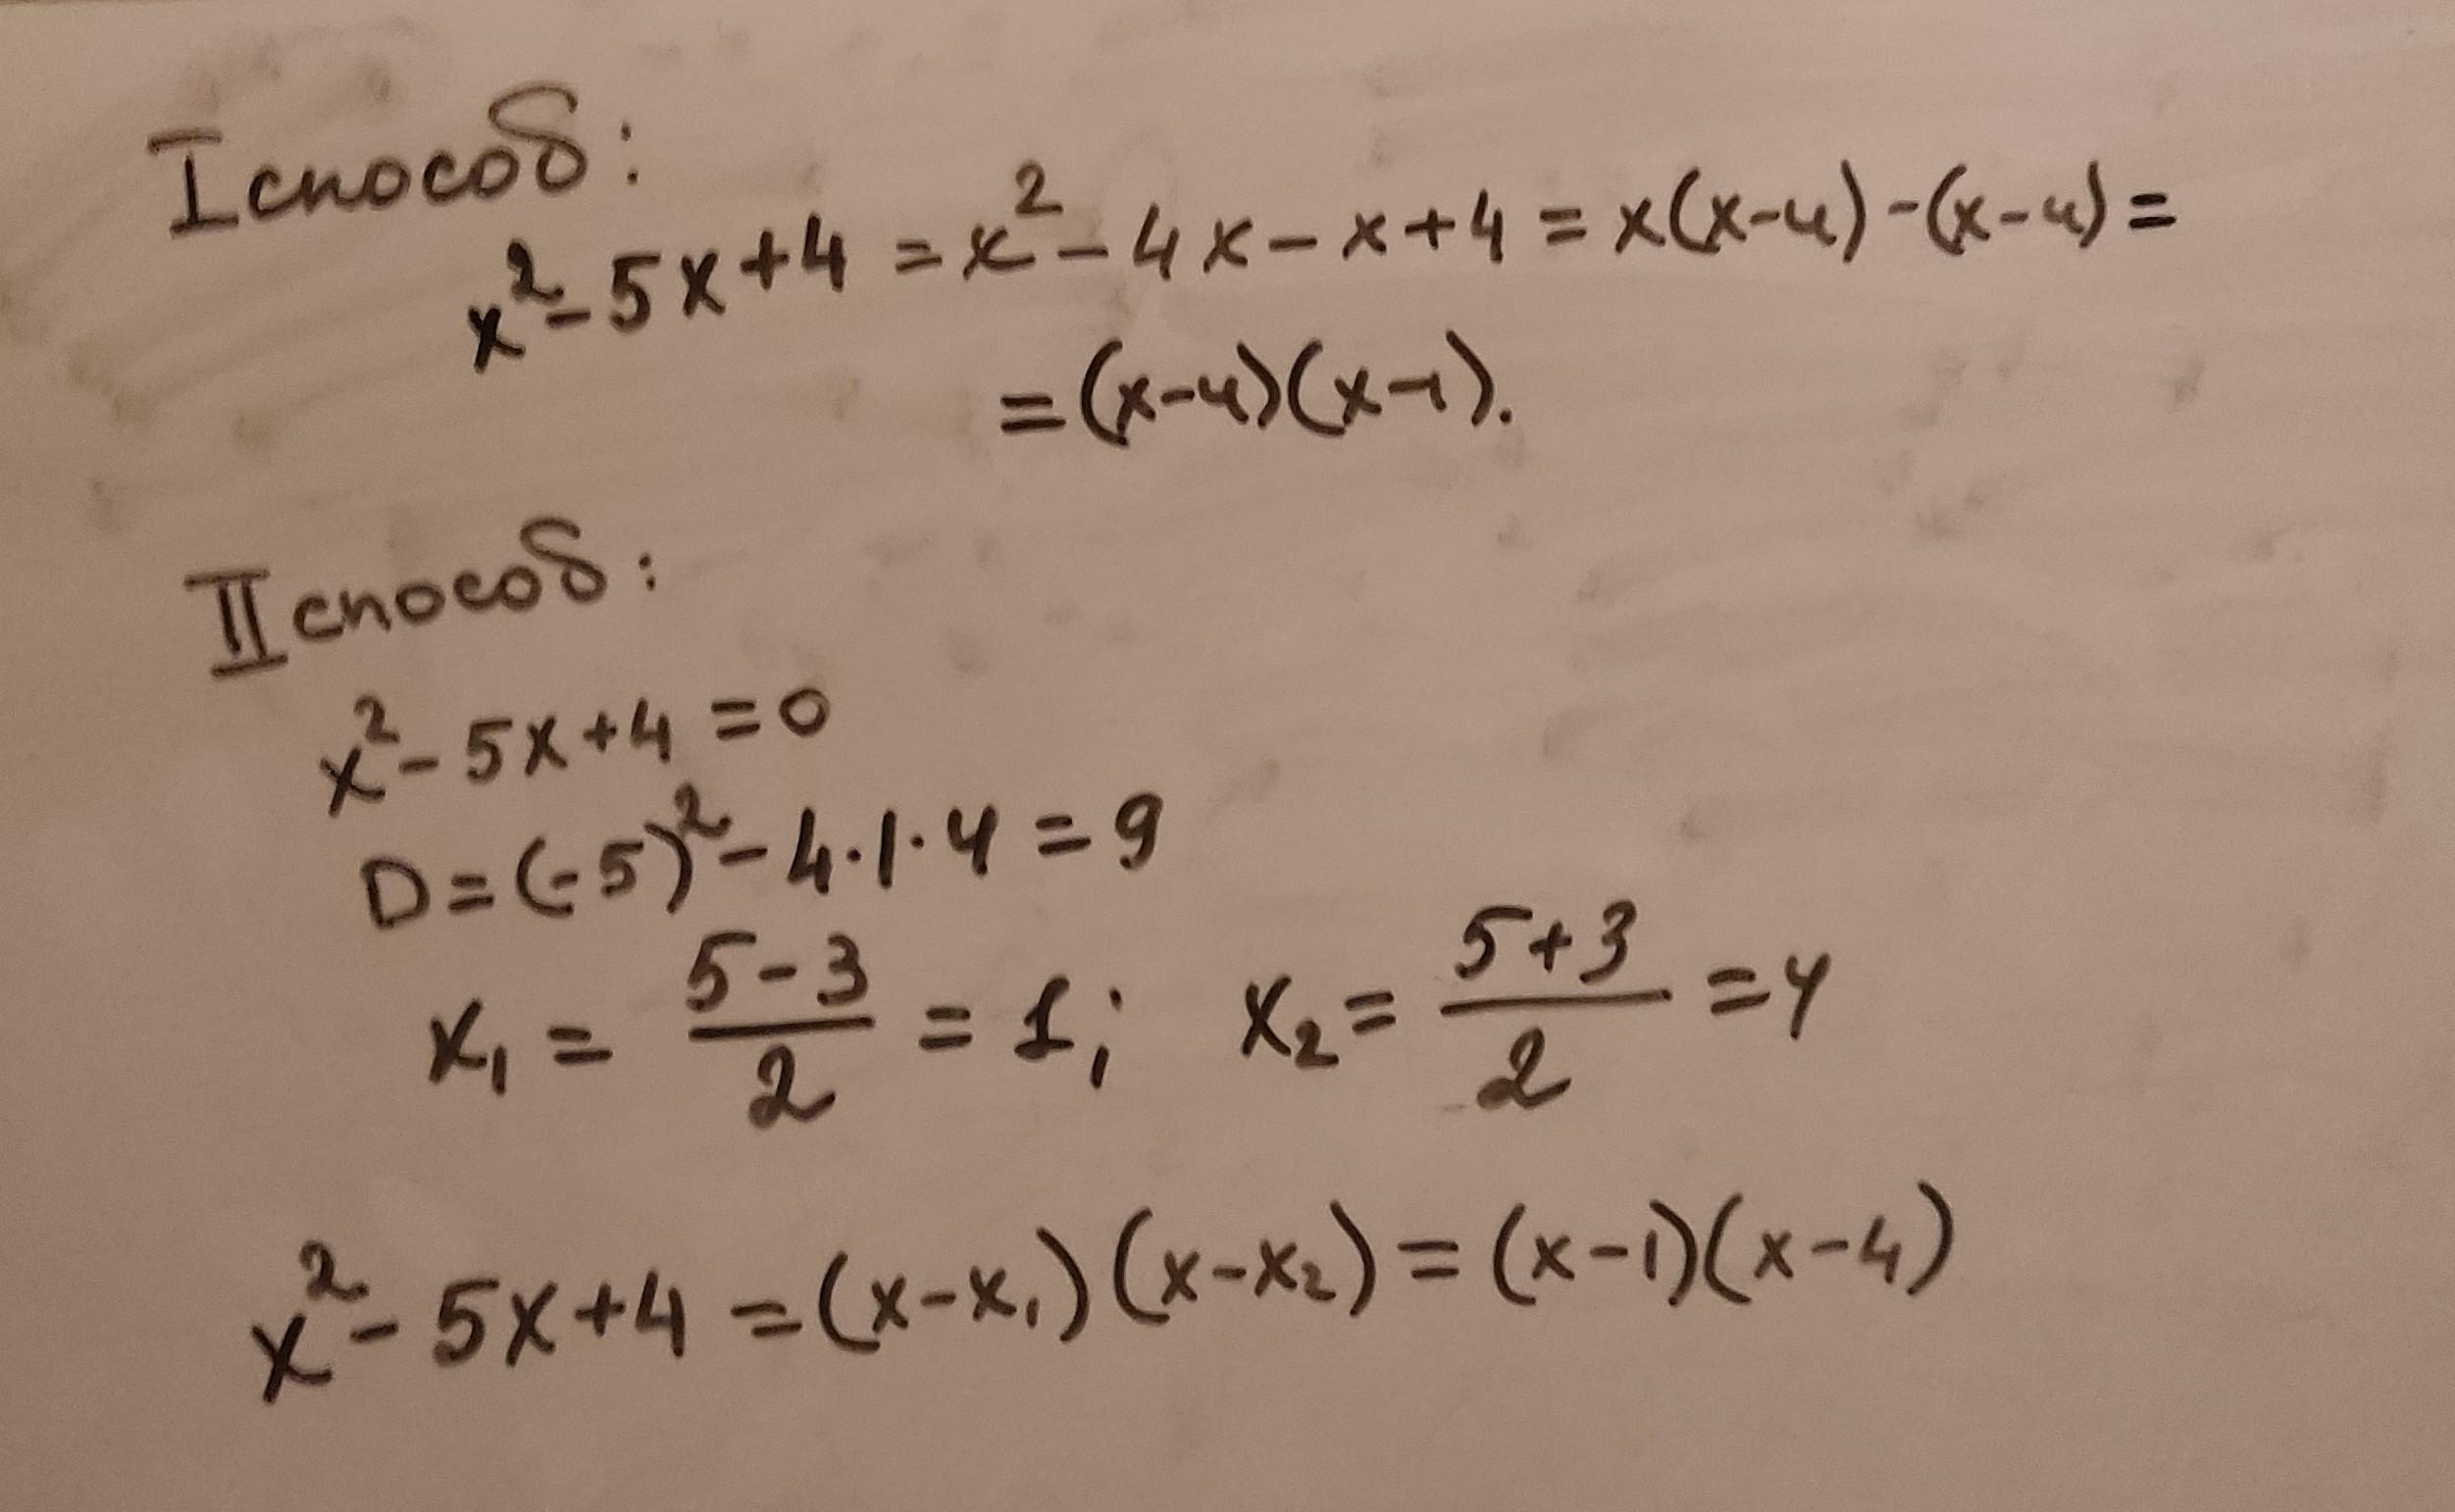 I способ:
x² - 5x + 4 = x² - 4x - x + 4 = x(x-4) - (x-4) =
= (x-4)(x-1).
II способ:
x² - 5x + 4 = 0
D = (-5)² - 4·1·4 = 9
x₁ = (5-3)/2 = 1; x₂ = (5+3)/2 = 4
x² - 5x + 4 = (x-x₁)(x-x₂) = (x-1)(x-4)